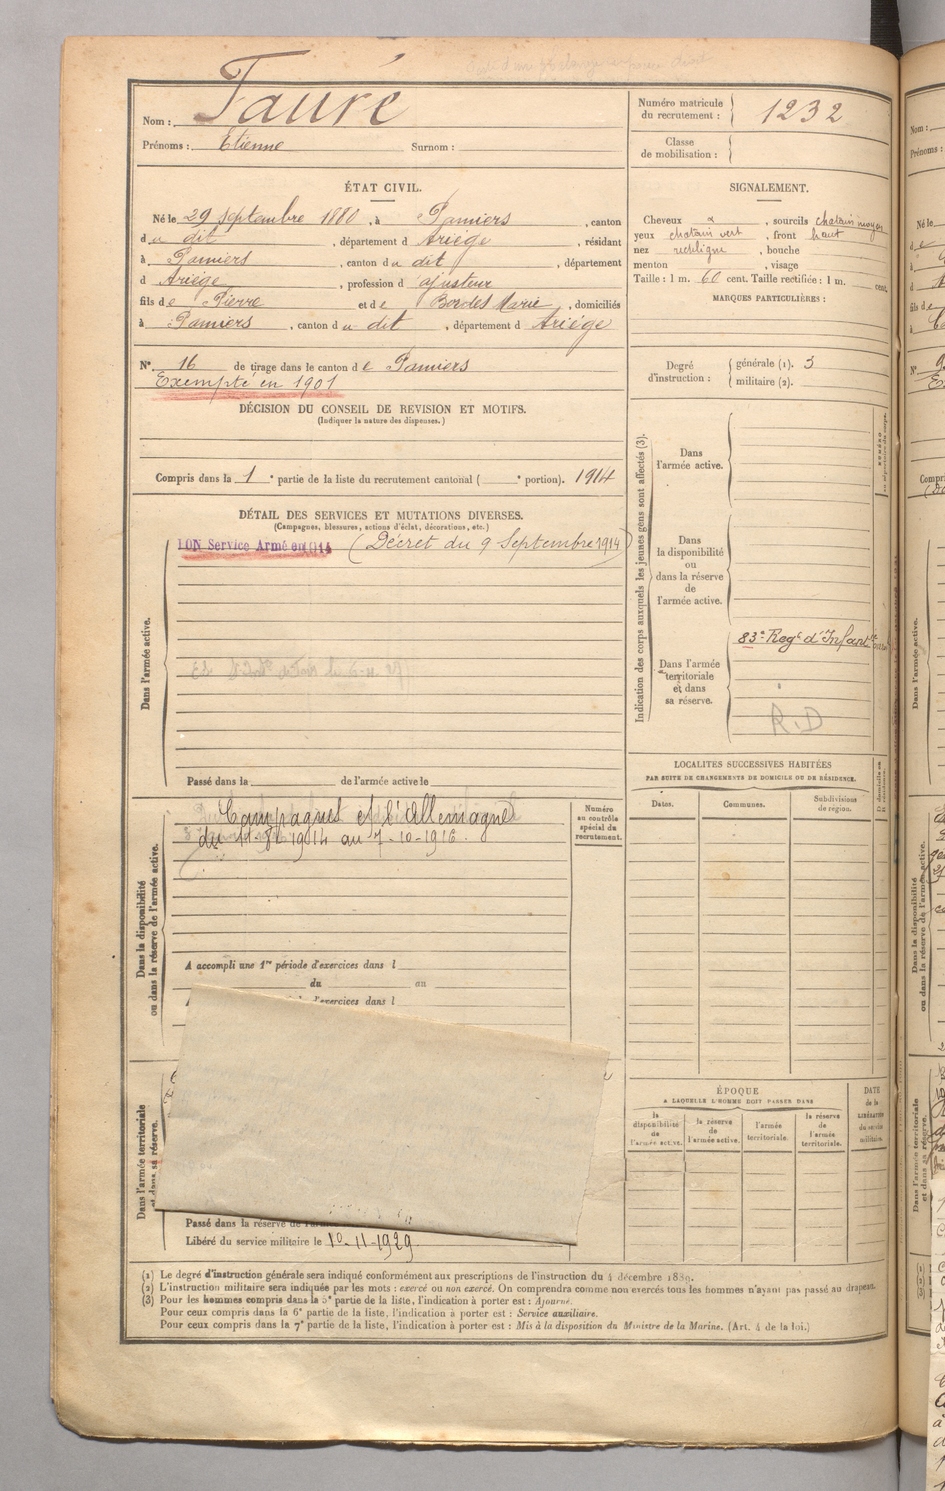 Nom : Fauré
Prénoms : Etienne Surnom :
Numéro matricule du recrutement : 1232
Classe de mobilisation :
ÉTAT CIVIL.
Né le 29 Septembre 1880, à Pamiers, canton
du dit, département d Ariége, résidant
à Pamiers, canton du dit, département
d Ariége, profession d ajusteur
fils de Pierre et de Bordes Marie, domiciliés
à Pamiers, canton du dit, département d Ariége
N° 16 de tirage dans le canton de Pamiers
Exempté en 1901
SIGNALEMENT.
Cheveux , sourcils chatain moyen
yeux chatain vert, front haut
nez rectiligne, bouche
menton , visage
Taille : 1 m. 60 cent. Taille rectifiée : 1 m. cent.
MARQUES PARTICULIÈRES :
Degré d'instruction : générale (1). 3
militaire (2).
DÉCISION DU CONSEIL DE REVISION ET MOTIFS.
(Indiquer la nature des dispenses.)
Compris dans la 1e partie de la liste du recrutement cantonal ( e portion). 1914
DÉTAIL DES SERVICES ET MUTATIONS DIVERSES.
(Campagnes, blessures, actions d'éclat, décorations, etc.)
Dans l'armée active.
BON Service Armé en 1914 (Décret du 9 Septembre 1914)
Passé dans la de l'armée active le
Indication des corps auxquels les jeunes gens sont affectés (3).
Dans l'armée active.
Dans la disponibilité ou dans la réserve de l'armée active.
Dans l'armée territoriale et dans sa réserve.
83e Regt d'Infant
R.D
LOCALITÉS SUCCESSIVES HABITÉES
PAR SUITE DE CHANGEMENTS DE DOMICILE OU DE RÉSIDENCE.
Dates. Communes. Subdivisions de région.
Dans la disponibilité ou dans la réserve de l'armée active.
Campagnes et l'Allemagne
du 1914 au 7-10-1916.
Numéro au contrôle spécial du recrutement.
A accompli une 1re période d'exercices dans l
du au
d'exercices dans l
Dans l'armée territoriale et dans sa réserve.
Passé dans la réserve de
Libéré du service militaire le 10-11-1929
ÉPOQUE
A LAQUELLE L'HOMME DOIT PASSER DANS
la disponibilité de l'armée active.
la réserve de l'armée active.
l'armée territoriale.
la réserve de l'armée territoriale.
DATE de la LIBÉRATION du service militaire.
(1) Le degré d'instruction générale sera indiqué conformément aux prescriptions de l'instruction du 4 décembre 1889.
(2) L'instruction militaire sera indiquée par les mots : exercé ou non exercé. On comprendra comme non exercés tous les hommes n'ayant pas passé au drapeau.
(3) Pour les hommes compris dans la 5e partie de la liste, l'indication à porter est : Ajourné.
Pour ceux compris dans la 6e partie de la liste, l'indication à porter est : Service auxiliaire.
Pour ceux compris dans la 7e partie de la liste, l'indication à porter est : Mis à la disposition du Ministre de la Marine. (Art. 4 de la loi.)